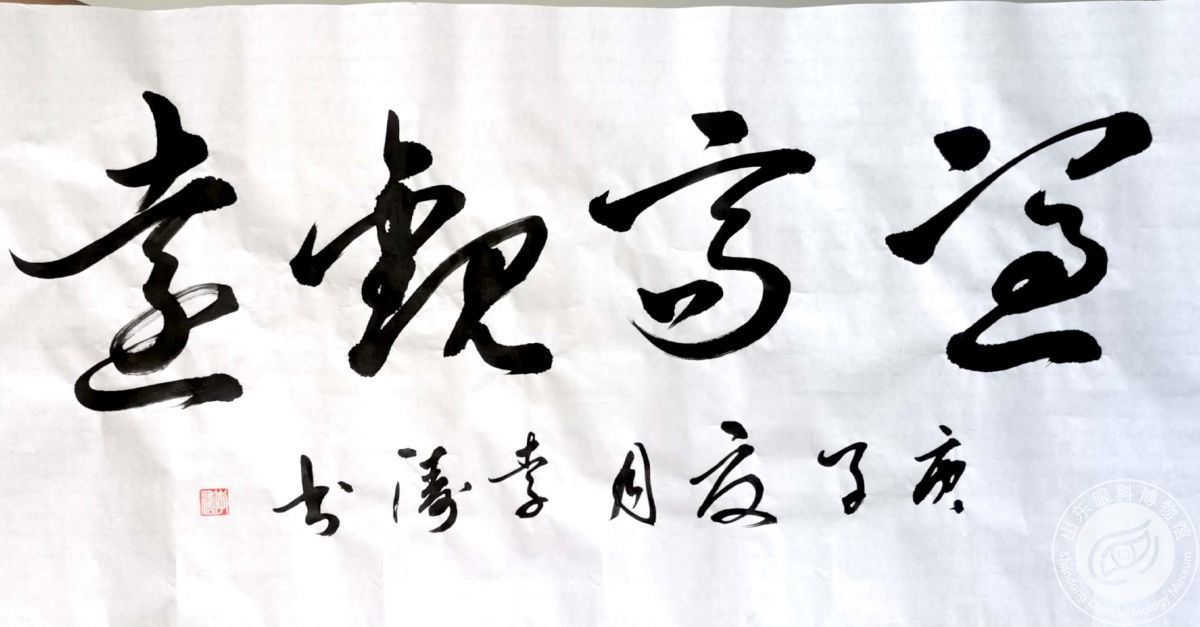 登高觀遠
庚子夏月李濤书
山东眼科博物馆
Shandong Ophthalmology Museum